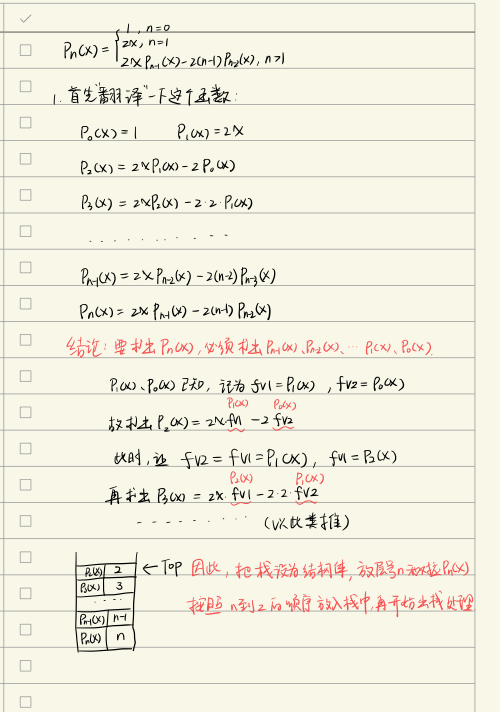 Pn(x) = { 1, n=0
2x, n=1
2xPn-1(x)-2(n-1)Pn-2(x), n>1
1. 首先"翻译"一下这个函数:
P0(x)=1 P1(x)=2x
P2(x)=2xP1(x)-2P0(x)
P3(x)=2xP2(x)-2·2·P1(x)
. . . . . . . . . . .
Pn-1(x)=2xPn-2(x)-2(n-2)Pn-3(x)
Pn(x)=2xPn-1(x)-2(n-1)Pn-2(x)
结论:要求出Pn(x),必须求出Pn-1(x)、Pn-2(x)、…P1(x)、P0(x).
P1(x)、P0(x)已知,记为fv1=P1(x),fv2=P0(x)
P1(x) P0(x)
故求出P2(x)=2x·fv1-2fv2
此时,让 fv2=fv1=P1(x),fv1=P2(x)
P2(x) P1(x)
再求出P3(x)=2x·fv1-2·2·fv2
- - - - - - . . . (以此类推)
P2(x) 2 ← Top 因此,把栈设为结构体,放层号n和对应Pn(x)
P3(x) 3
. . . . 按照n到2的顺序放入栈中,再开始出栈处理
Pn-1(x) n-1
Pn(x) n